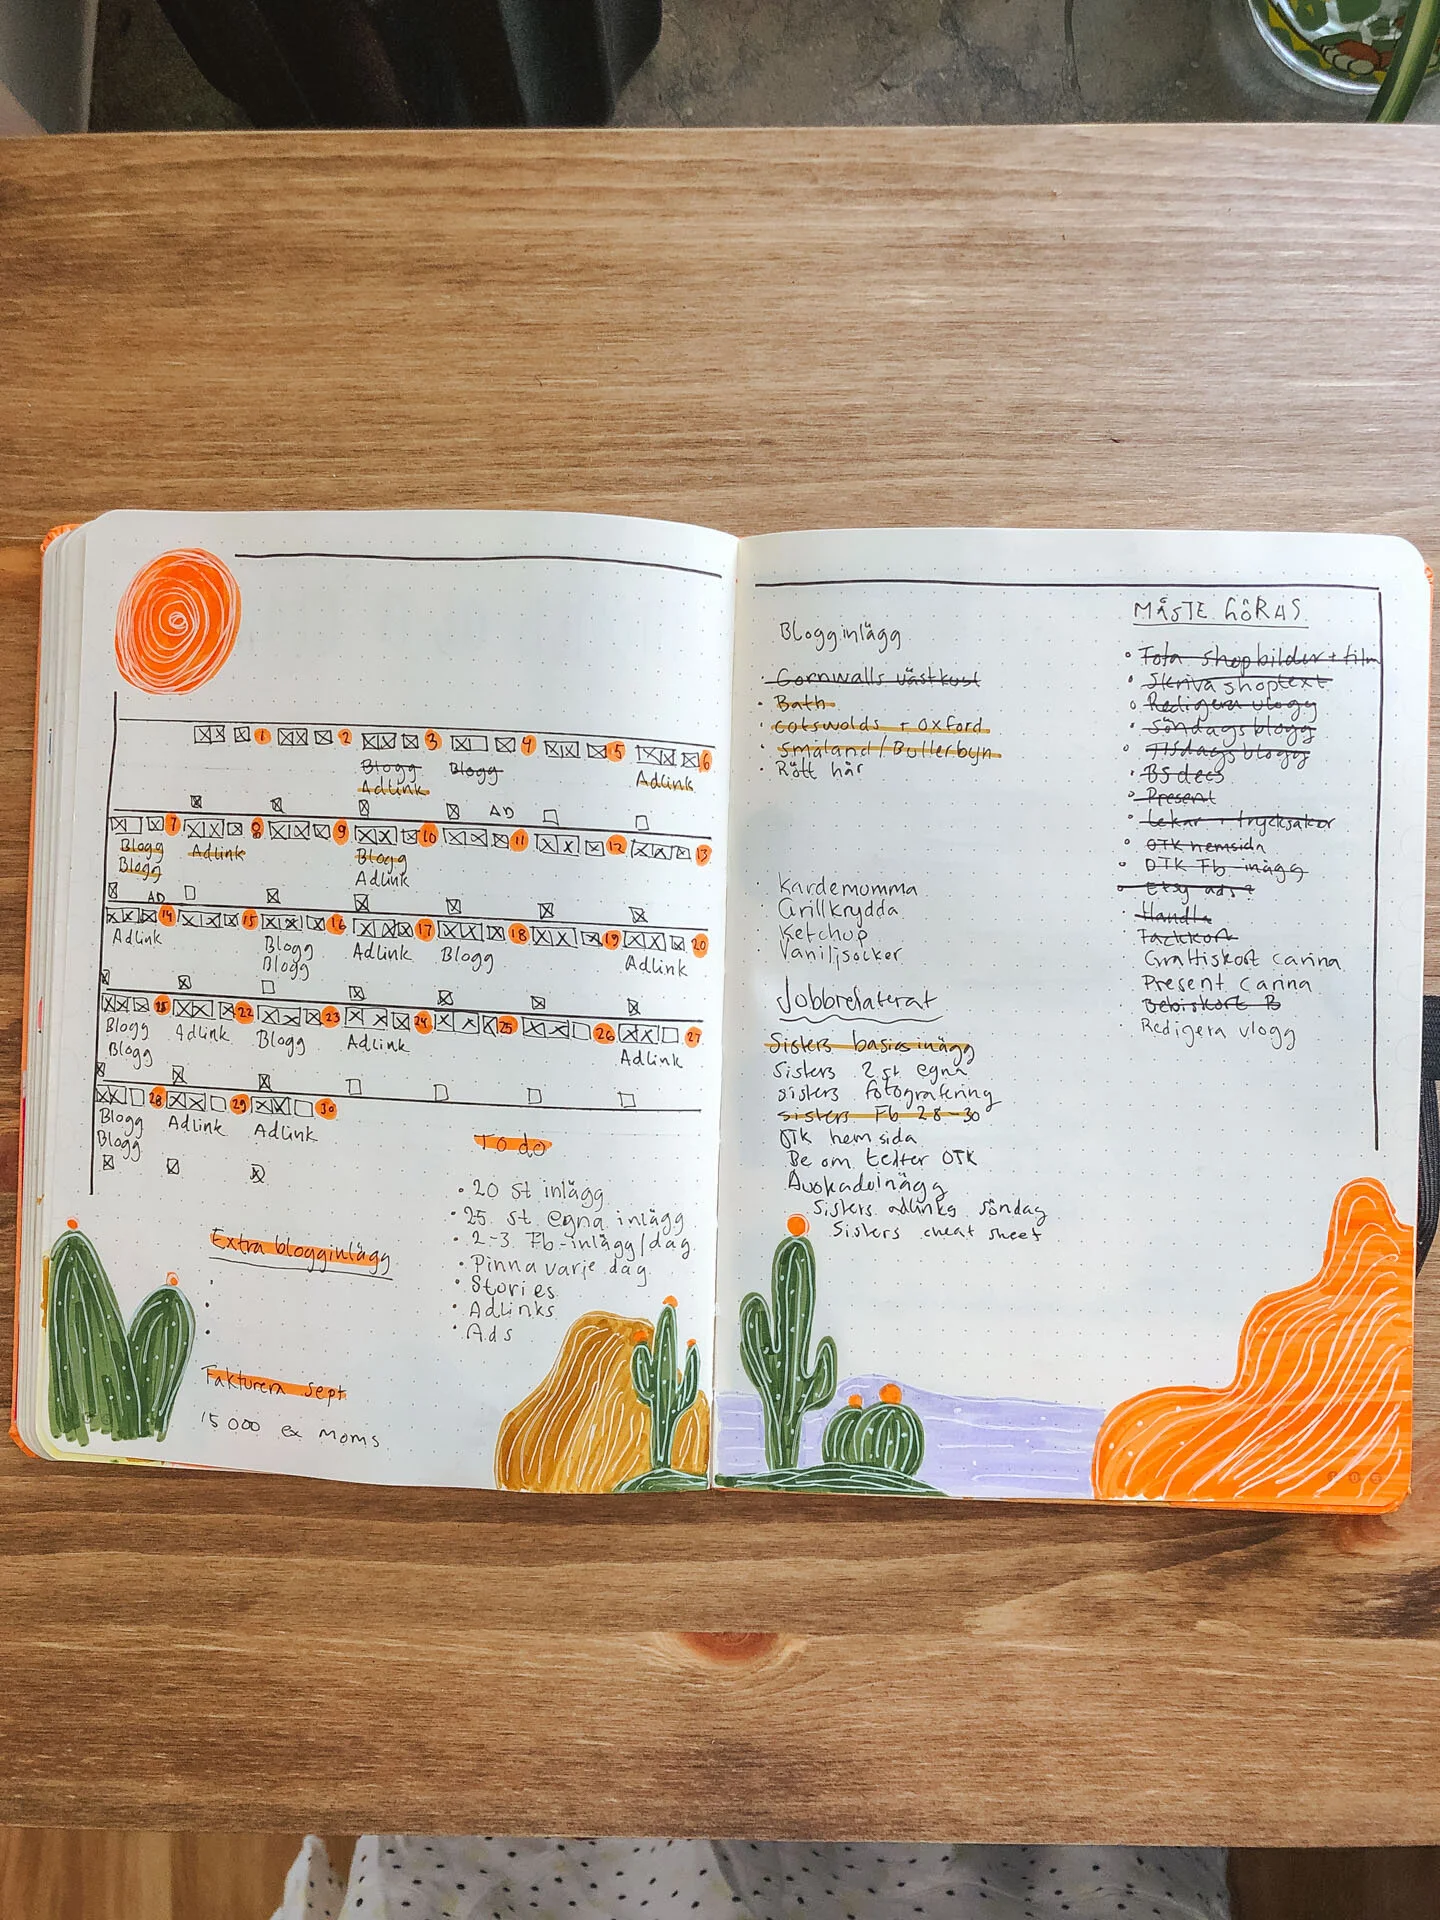 1 2 3 4 5 6
Blogg Blogg
AdLink AdLink
AD
7 8 9 10 11 12 13
Blogg AdLink Blogg
Blogg AdLink
AD
14 15 16 17 18 19 20
AdLink Blogg AdLink Blogg AdLink
Blogg
22 23 24 25 26 27
Blogg AdLink Blogg AdLink AdLink
Blogg
28 29 30
Blogg AdLink AdLink
Blogg
To do
• 20 st inlägg
• 25 st egna inlägg
• 2-3 Fb-inlägg/dag
• Pinna varje dag
• Stories
• AdLinks
• Ads
Extra blogginlägg
Fakturera sept
15 000 ex moms
Blogginlägg
• Cornwalls västkust
• Bath
• Cotswolds + Oxford
• Småland/Bullerbyn
• Rött hår
Kardemumma
Grillkrydda
Ketchup
Vaniljsocker
Jobbrelaterat
Sisters basics inägg
Sisters 2 st egna
Sisters fotografering
Sisters Fb 28-30
OTK hemsida
Be om texter OTK
Avokadoinägg
Sisters adlinks söndag
Sisters cheat sheet
MÅSTE GÖRAS
• Fota shopbilder + film
• Skriva shoptext
• Redigera vlogg
• Söndagsblogg
• Tisdagsblogg
• BS decs
• Present
• Lekar + trycksaker
• OTK hemsida
• OTK Fb-inägg
• Etsy ads?
• Handla
• Tackkort
• Grattiskort Carina
• Present Carina
• Bebiskort B
• Redigera vlogg